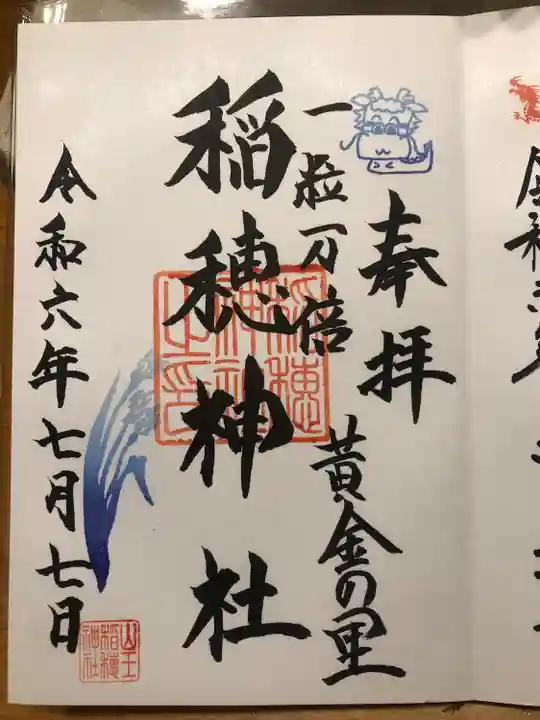 奉拝
一粒万倍
黄金の里
稲穂神社
稲穂
神社
之印
令和六年七月七日
山王
稲穂
神社